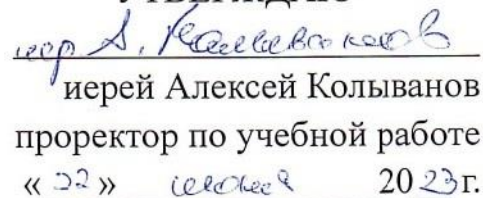 УТВЕРЖДАЮ
иер. А.
иерей Алексей Колыванов
проректор по учебной работе
« 22 » июня 2023 г.